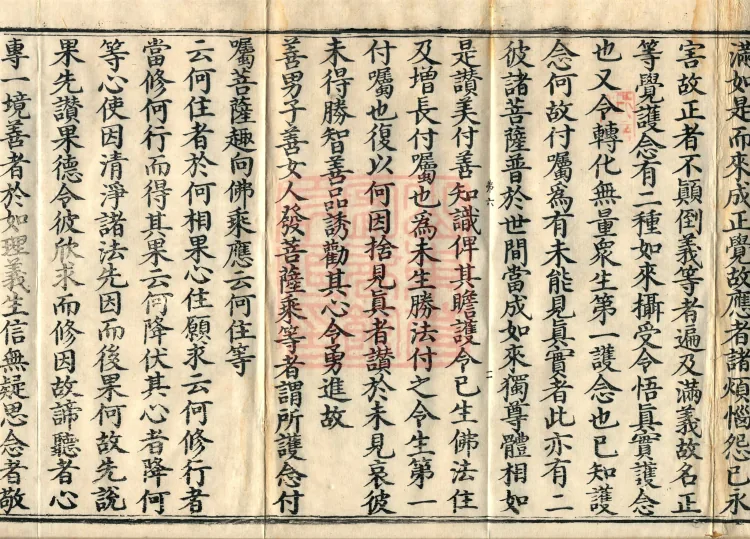 滿如是而來成正覺故應者諸煩惱怨已永
害故正者不顛倒義等者遍及滿義故名正
等覺護念有二種如來攝受令悟真實護念
也又令轉化無量衆生第一護念也已知護
念何故付囑為有未能見真實者此亦有二
彼諸菩薩普於世間當成如來獨尊體相如
第六
二
是讚美付善知識俾其瞻護令已生佛法住
及增長付囑也為未生勝法付之令生第一
付囑也復以何因捨見真者讚於未見哀彼
未得勝智善品誘勸其心令勇進故
善男子善女人發菩薩乘等者謂所護念付
囑菩薩趣向佛乘應云何住等
云何住者於何相果心住願求云何修行者
當修何行而得其果云何降伏其心者降何
等心使因清淨諸法先因而後果何故先說
果先讚果德令彼欣求而修因故諦聽者心
專一境善者於如理義生信無疑思念者敬